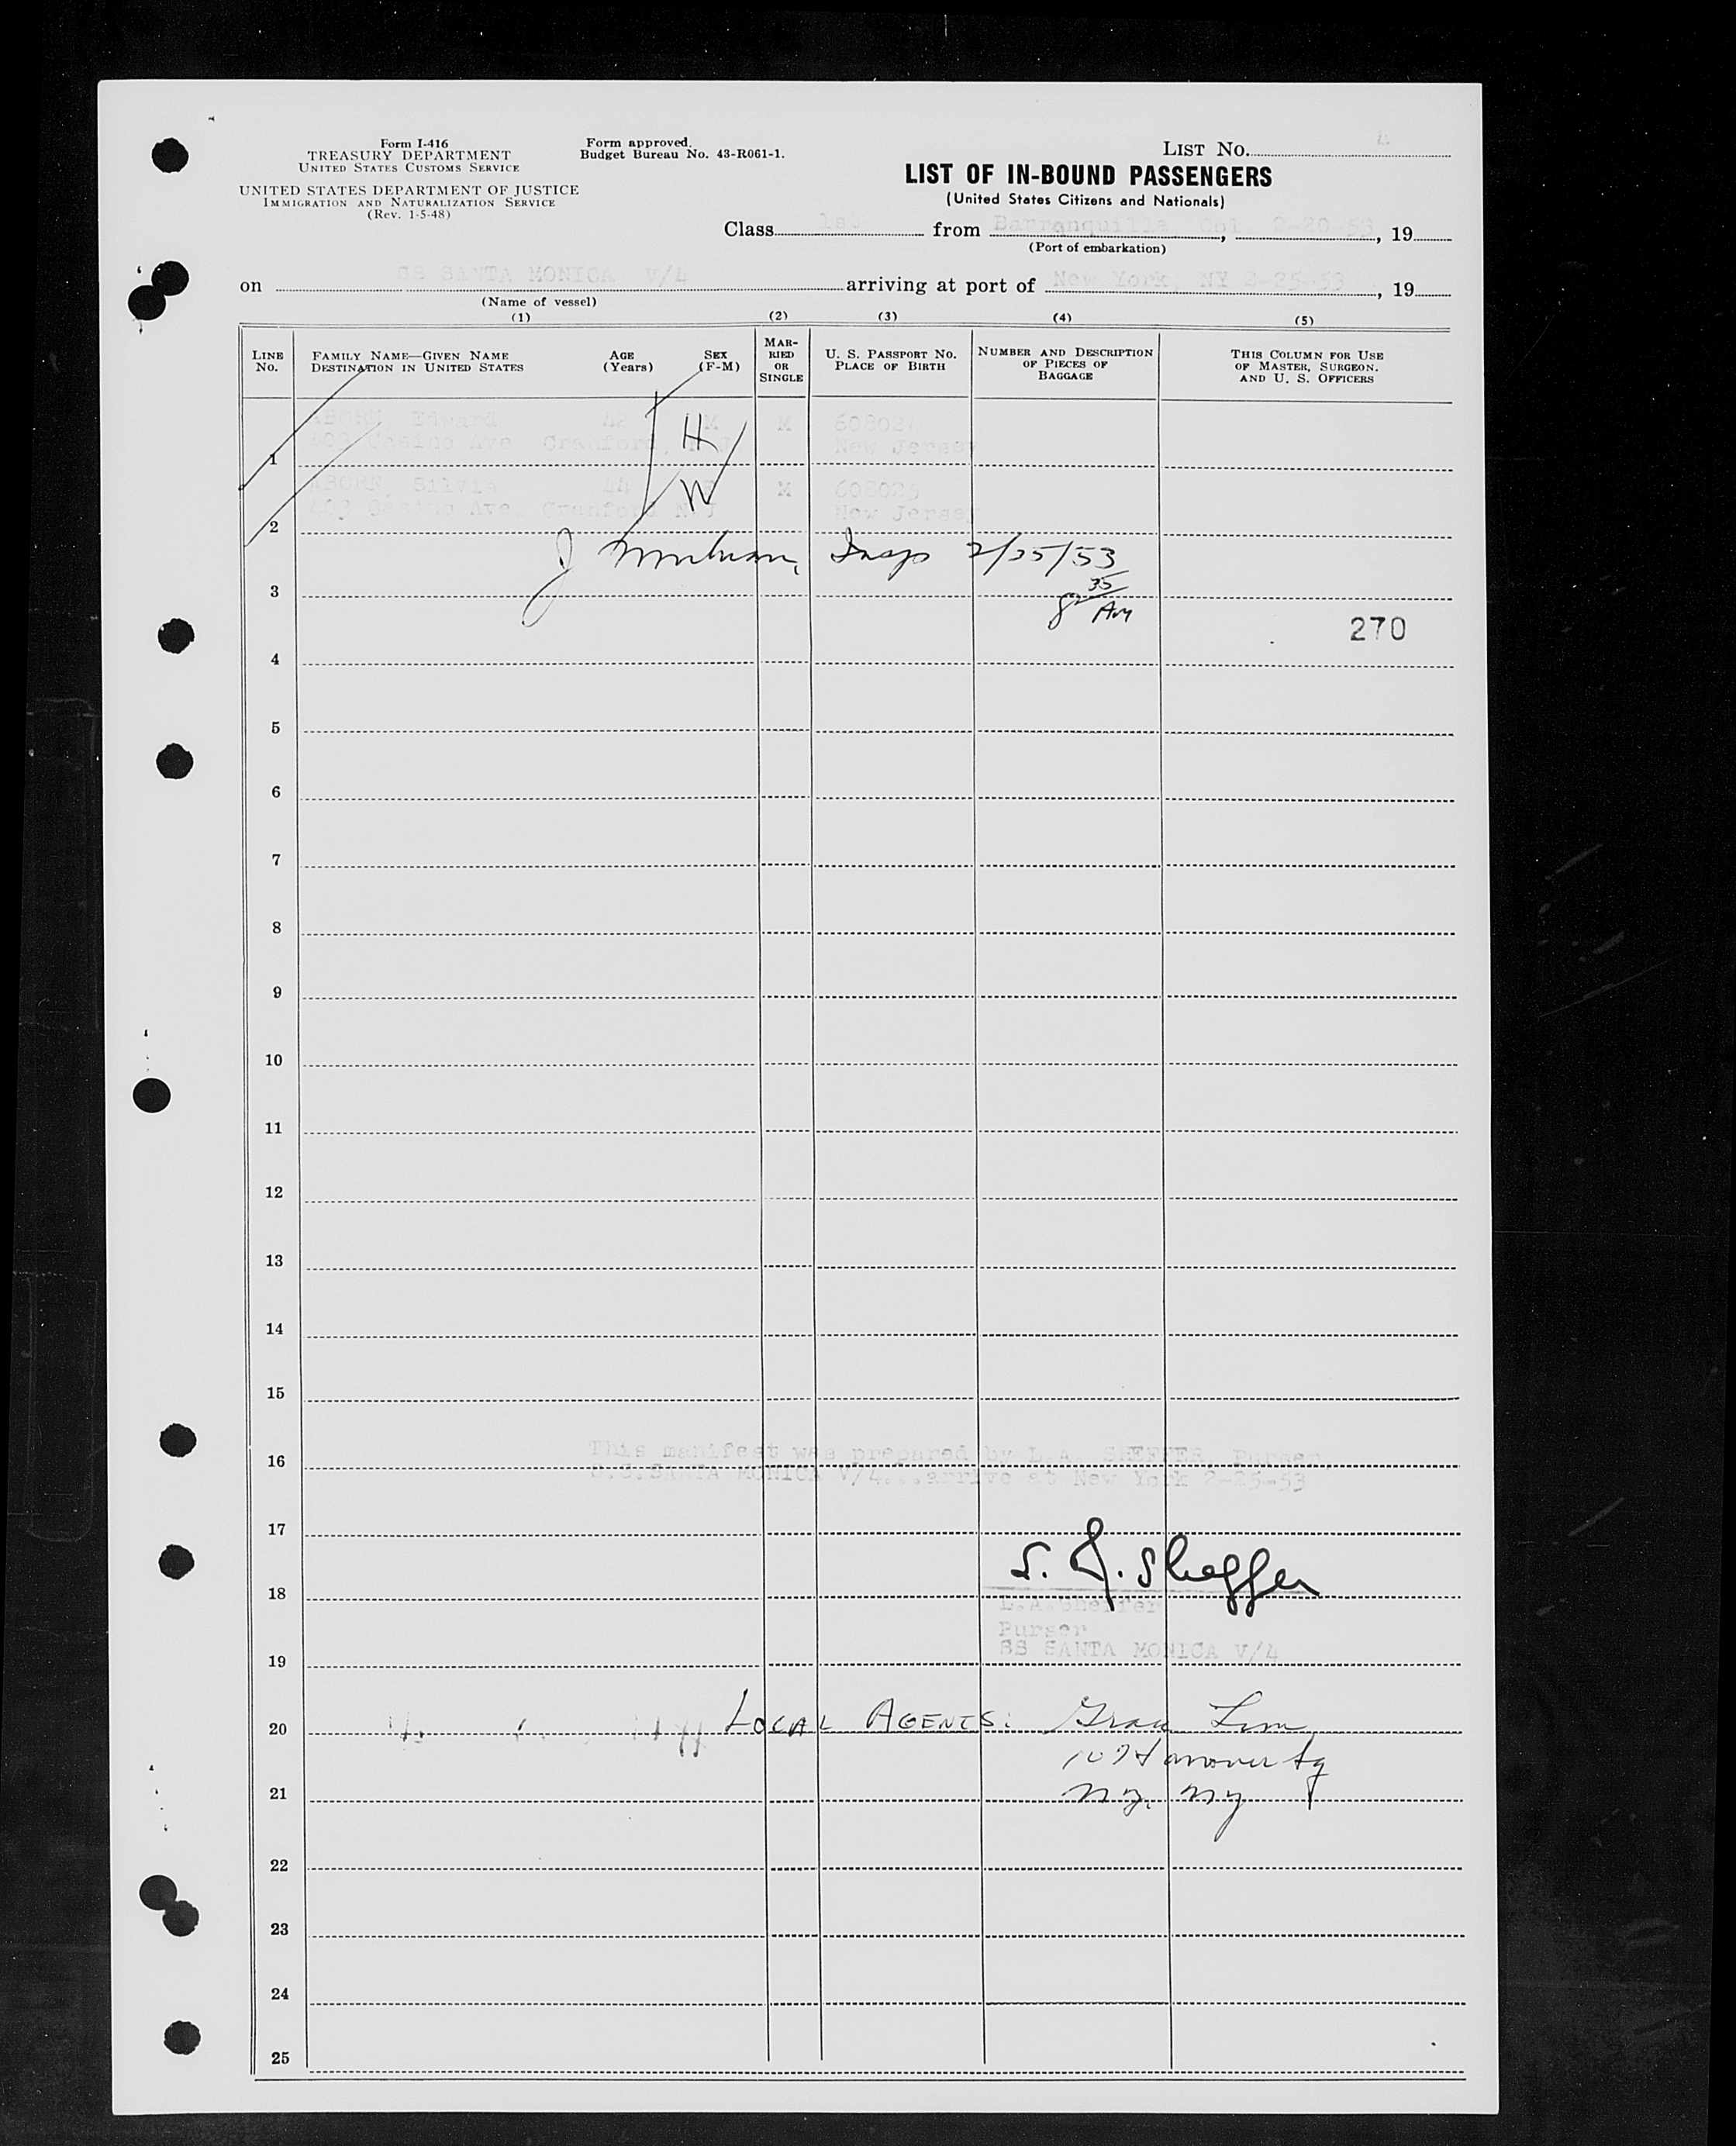 Form I-416
TREASURY DEPARTMENT
UNITED STATES CUSTOMS SERVICE
UNITED STATES DEPARTMENT OF JUSTICE
IMMIGRATION AND NATURALIZATION SERVICE
(Rev. 1-5-48)
Form approved.
Budget Bureau No. 43-R061-1.
LIST No. 4
LIST OF IN-BOUND PASSENGERS
(United States Citizens and Nationals)
Class 1st from Barranquilla Col. 2-20-53, 19
(Port of embarkation)
on SS SANTA MONICA V/4 arriving at port of New York, NY 2-25-53, 19
(Name of vessel)
(1) (2) (3) (4) (5)
LINE No. FAMILY NAME—GIVEN NAME DESTINATION IN UNITED STATES AGE (Years) SEX (F-M) MARRIED OR SINGLE U. S. PASSPORT No. PLACE OF BIRTH NUMBER AND DESCRIPTION OF PIECES OF BAGGAGE THIS COLUMN FOR USE OF MASTER, SURGEON, AND U. S. OFFICERS
ABORN Edward 42 M M H
1 Casino Ave Cranford, New Jersey
ABORN, Silvia 44 M W
2 Casino Ave. Cranford N J New Jersey
J Insp 2/25/53
3 8 35 AM
270
4
5
6
7
8
9
10
11
12
13
14
15
This manifest was prepared by L.A. SHEFFER, Purser
16
S.S.SANTA MONICA V/4...arrive at New York 2-25-53
17
L. A. Sheffer
18
L.A.Sheffer
Purser
SS SANTA MONICA V/4
19
20 LOCAL AGENTS: Grace Line
10 Hanover Sq
21 NY. NY
22
23
24
25